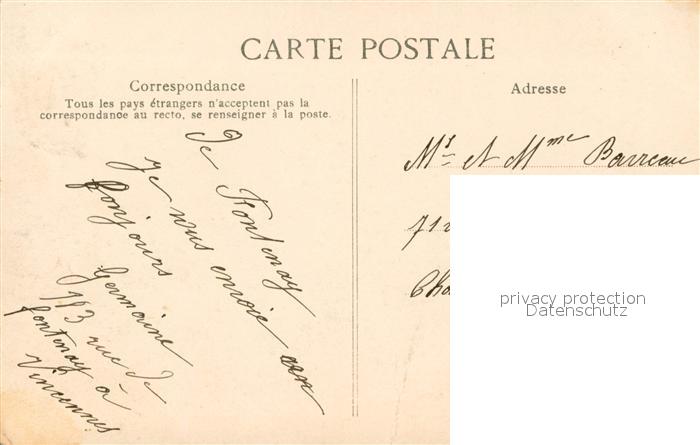 CARTE POSTALE
Correspondance
Tous les pays étrangers n'acceptent pas la
correspondance au recto, se renseigner à la poste.
De Fontenay
je vous envoie un
bonjours
Germaine
113 rue de
fontenay à
Vincennes
Adresse
Mr et Mme Barreau
71
privacy protection
Datenschutz